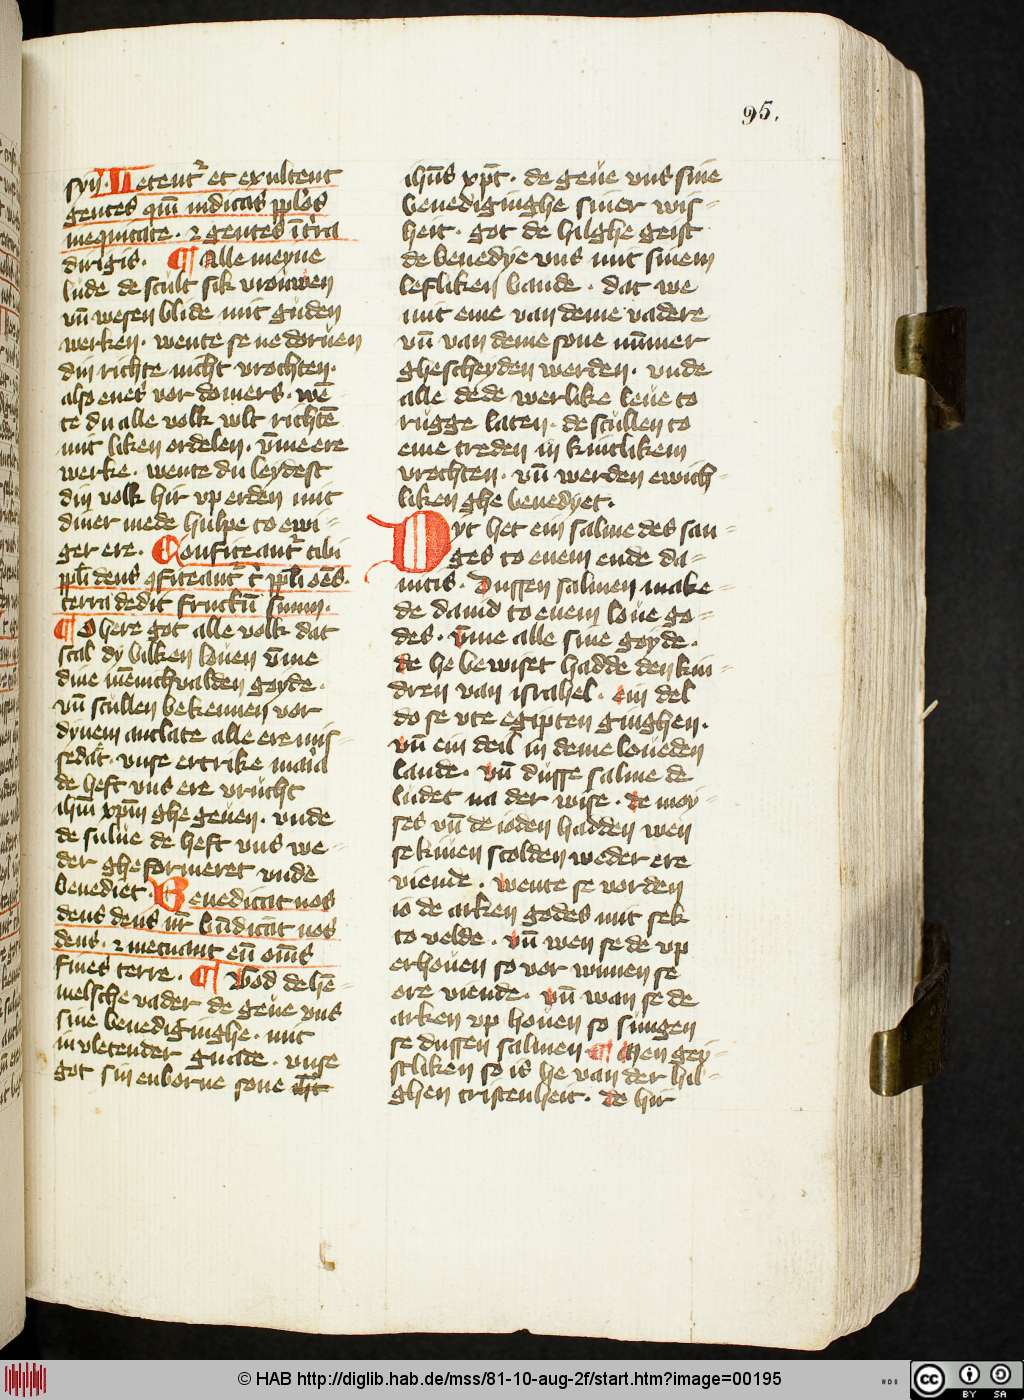 95.
syn. Letent᷑ et exultent
gentes qm̄ iudicas pplos
inequitate. ⁊ gentes ī t͛ra
dirigis. ¶ Alle meyne
lude de scult sik vrouwen
vn̄ wesen blide mit guden
werken. wente se ne doruen
din richte nicht vrochten.
also enes vordomers. wē
te du alle volk wlt richtē
mit liken ordelen. v̄me ere
werke. wente du leydest
din volk hir vp erden mit
diner mede hulpe to ewi-
ger ere. Confiteant᷑ tibi
ppl̄i deus ꝯfiteant᷑ t' ppl̄i oēs.
terra dedit fructū suum.
¶ O here got alle volk dat
scal dy bilken louen v̄me
dine mēnichvalden goyde.
vn̄ scullen bekennen vor
dynem antlate alle ere mis-
sedat. vnse ertrike maria
de heft vns ere vrucht
ihm̄ xpm̄ ghe geuen. vnde
de sulue de heft vns we-
der ghe formeret vnde
benediet. Benedicat nos
deus deus nr̄ bn̄dicat nos
deus. ⁊ metuant eū om̄s
fines terre. ¶ God de hē-
melsche vader de geue vns
sine benediginghe. mit
invletender gnade. vnse
got sin enborne sone
ihūs xp̄t. de geue vns sine
benediginghe siner wis-
heit. got de hilghe geist
de benedye vns mit sinem
lefliken bande. dat we
mit eme van deme vadere
vn̄ van deme sone nūmer
ghescheyden werden. vnde
alle dede werlike leue to
rugge laten. de scullen to
eme treden in kintlikem
vrochten. vn̄ werden ewich-
liken ghe benedyet.
Dyt het ein salme des san-
ges to enem ende da-
uitis. Dussen salmen make-
de dauid to enem loue go-
des. v̄me alle sine goyde.
de he bewiset hadde den kin-
dren van israhel. ein del
do se vte egipten ginghen.
vn̄ ein deil in deme loueden
lande. vn̄ dusse salme de
ludet na der wise. de moy-
ses vn̄ de ioden hadden wen
se kiuen scolden weder ere
viende. wente se vorden
io de arken godes mit sek
to velde. vn̄ wen se de vp
erhouen so vor winnen se
ere viende. vn̄ wan se de
arken vp houen so sungen
se dussen salmen ¶ Men gey-
stliken so is he van der hil-
ghen cristenheit. de hir
© HAB http://diglib.hab.de/mss/81-10-aug-2f/start.htm?image=00195
HAB
cc
BY SA